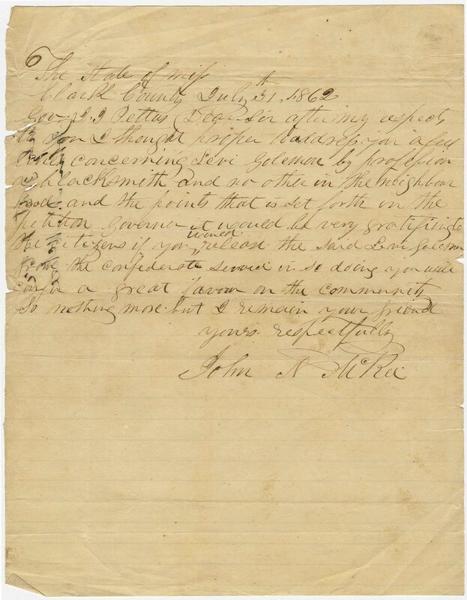 The State of miss
Clark County July 31th 1862
Gov J J Pettus Dear Sir after my respects
to you I thought proper to adress you a few
concerning Levi Goleman by profession
a blacksmith and no other in the neighbour
hood and the points that is set forth in the
petition governor it would be very gratifiing
the citizens if you would release the said Levi Goleman
from the confederate service in so doing you will
confir a great favour on the community
So nothing more but I remain your friend
yours respectfully
John McRee